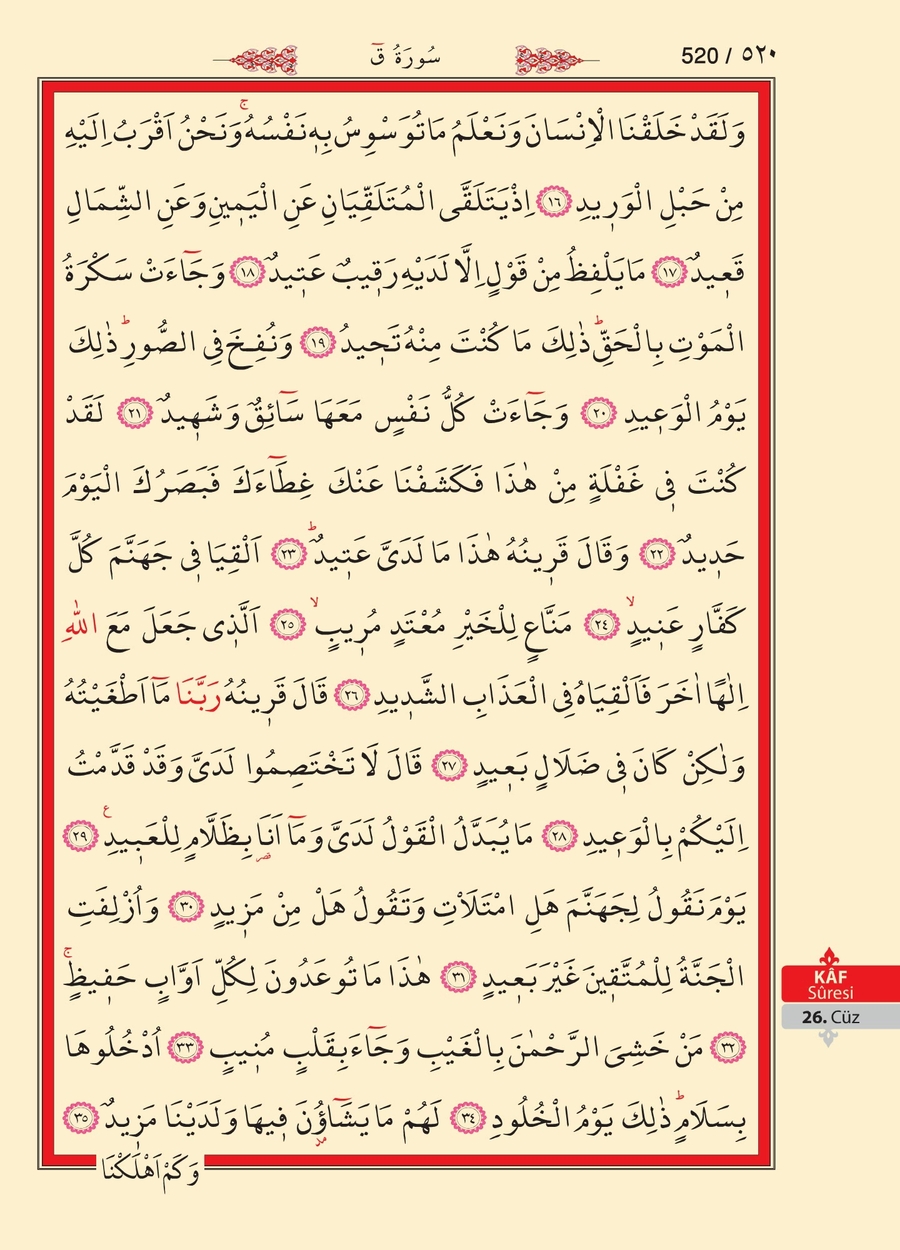 سُورَةُ قٓ
520 / ٥٢٠
وَلَقَدْ خَلَقْنَا الْاِنْسَانَ وَنَعْلَمُ مَا تُوَسْوِسُ بِه۪ نَفْسُهُۚ وَنَحْنُ اَقْرَبُ اِلَيْهِ
مِنْ حَبْلِ الْوَر۪يدِ ﴿١٦﴾ اِذْ يَتَلَقَّى الْمُتَلَقِّيَانِ عَنِ الْيَم۪ينِ وَعَنِ الشِّمَالِ
قَع۪يدٌ ﴿١٧﴾ مَا يَلْفِظُ مِنْ قَوْلٍ اِلَّا لَدَيْهِ رَق۪يبٌ عَت۪يدٌ ﴿١٨﴾ وَجَٓاءَتْ سَكْرَةُ
الْمَوْتِ بِالْحَقِّۜ ذٰلِكَ مَا كُنْتَ مِنْهُ تَح۪يدُ ﴿١٩﴾ وَنُفِخَ فِي الصُّورِۜ ذٰلِكَ
يَوْمُ الْوَع۪يدِ ﴿٢٠﴾ وَجَٓاءَتْ كُلُّ نَفْسٍ مَعَهَا سَٓائِقٌ وَشَه۪يدٌ ﴿٢١﴾ لَقَدْ
كُنْتَ ف۪ي غَفْلَةٍ مِنْ هٰذَا فَكَشَفْنَا عَنْكَ غِطَٓاءَكَ فَبَصَرُكَ الْيَوْمَ
حَد۪يدٌ ﴿٢٢﴾ وَقَالَ قَر۪ينُهُ هٰذَا مَا لَدَيَّ عَت۪يدٌۜ ﴿٢٣﴾ اَلْقِيَا ف۪ي جَهَنَّمَ كُلَّ
كَفَّارٍ عَن۪يدٍۙ ﴿٢٤﴾ مَنَّاعٍ لِلْخَيْرِ مُعْتَدٍ مُر۪يبٍۙ ﴿٢٥﴾ اَلَّذ۪ي جَعَلَ مَعَ اللّٰهِ
اِلٰهًا اٰخَرَ فَاَلْقِيَاهُ فِي الْعَذَابِ الشَّد۪يدِ ﴿٢٦﴾ قَالَ قَر۪ينُهُ رَبَّنَا مَٓا اَطْغَيْتُهُ
وَلٰكِنْ كَانَ ف۪ي ضَلَالٍ بَع۪يدٍ ﴿٢٧﴾ قَالَ لَا تَخْتَصِمُوا لَدَيَّ وَقَدْ قَدَّمْتُ
اِلَيْكُمْ بِالْوَع۪يدِ ﴿٢٨﴾ مَا يُبَدَّلُ الْقَوْلُ لَدَيَّ وَمَٓا اَنَا۬ بِظَلَّامٍ لِلْعَب۪يدِ۟ ﴿٢٩﴾
يَوْمَ نَقُولُ لِجَهَنَّمَ هَلِ امْتَلَأْتِ وَتَقُولُ هَلْ مِنْ مَز۪يدٍ ﴿٣٠﴾ وَاُزْلِفَتِ
الْجَنَّةُ لِلْمُتَّق۪ينَ غَيْرَ بَع۪يدٍ ﴿٣١﴾ هٰذَا مَا تُوعَدُونَ لِكُلِّ اَوَّابٍ حَف۪يظٍۚ
﴿٣٢﴾ مَنْ خَشِيَ الرَّحْمٰنَ بِالْغَيْبِ وَجَٓاءَ بِقَلْبٍ مُن۪يبٍ ﴿٣٣﴾ اُدْخُلُوهَا
بِسَلَامٍۜ ذٰلِكَ يَوْمُ الْخُلُودِ ﴿٣٤﴾ لَهُمْ مَا يَشَٓاؤُ۫نَ ف۪يهَا وَلَدَيْنَا مَز۪يدٌ ﴿٣٥﴾
وَكَمْ اَهْلَكْنَا
KÂF
Sûresi
26. Cüz